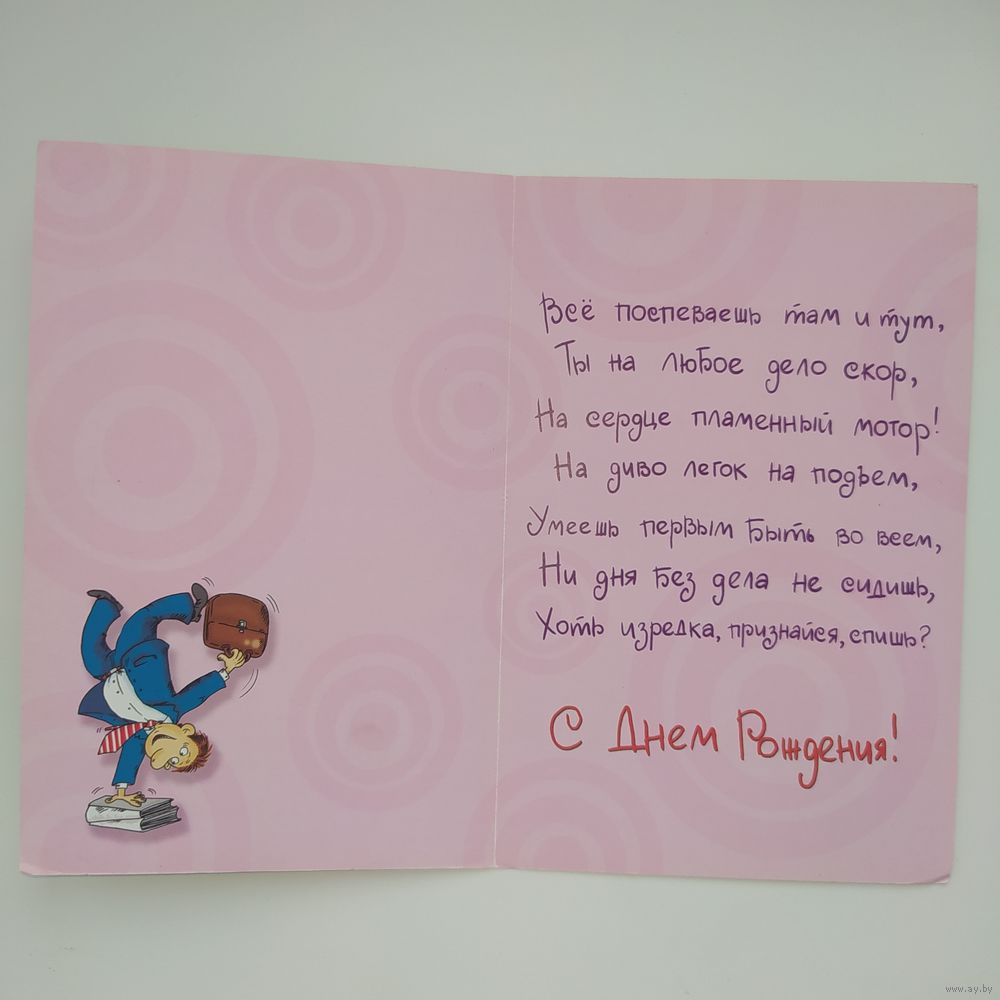 Всё поспеваешь там и тут,
Ты на любое дело скор,
На сердце пламенный мотор!
На диво легок на подъем,
Умеешь первым быть во всем,
Ни дня без дела не сидишь,
Хоть изредка, признайся, спишь?
С Днем Рождения!
www.ay.by